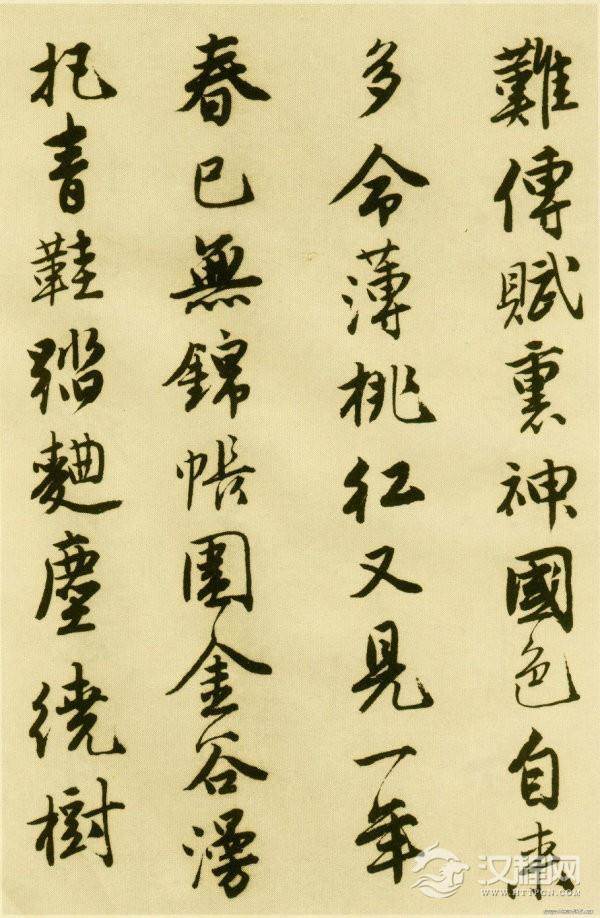 難傳賦裏神國色自來
多命薄桃紅又見一年
春已無錦帳圍金谷漫
把青鞋踏麯塵繞樹
汉程网
HTTPCN.COM